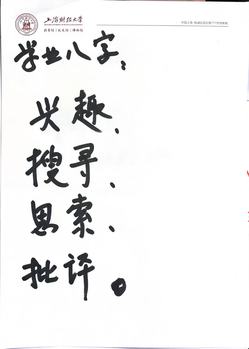 上海财经大学
学业八字：
兴趣、
搜寻、
思索、
批评。